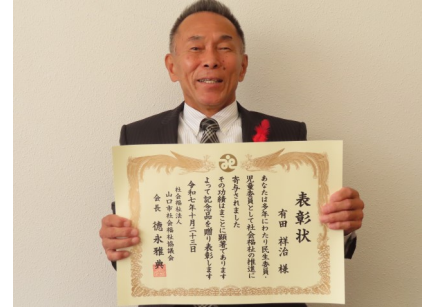 表彰状
有田 祥治 様
あなたは多年にわたり民生委員
児童委員として社会福祉の推進に
寄与されました
その功績はまことに顕著であります
よって記念品を贈り表彰します
令和七年十月二十三日
社会福祉法人
山口市社会福祉協議会
会長 德永雅典